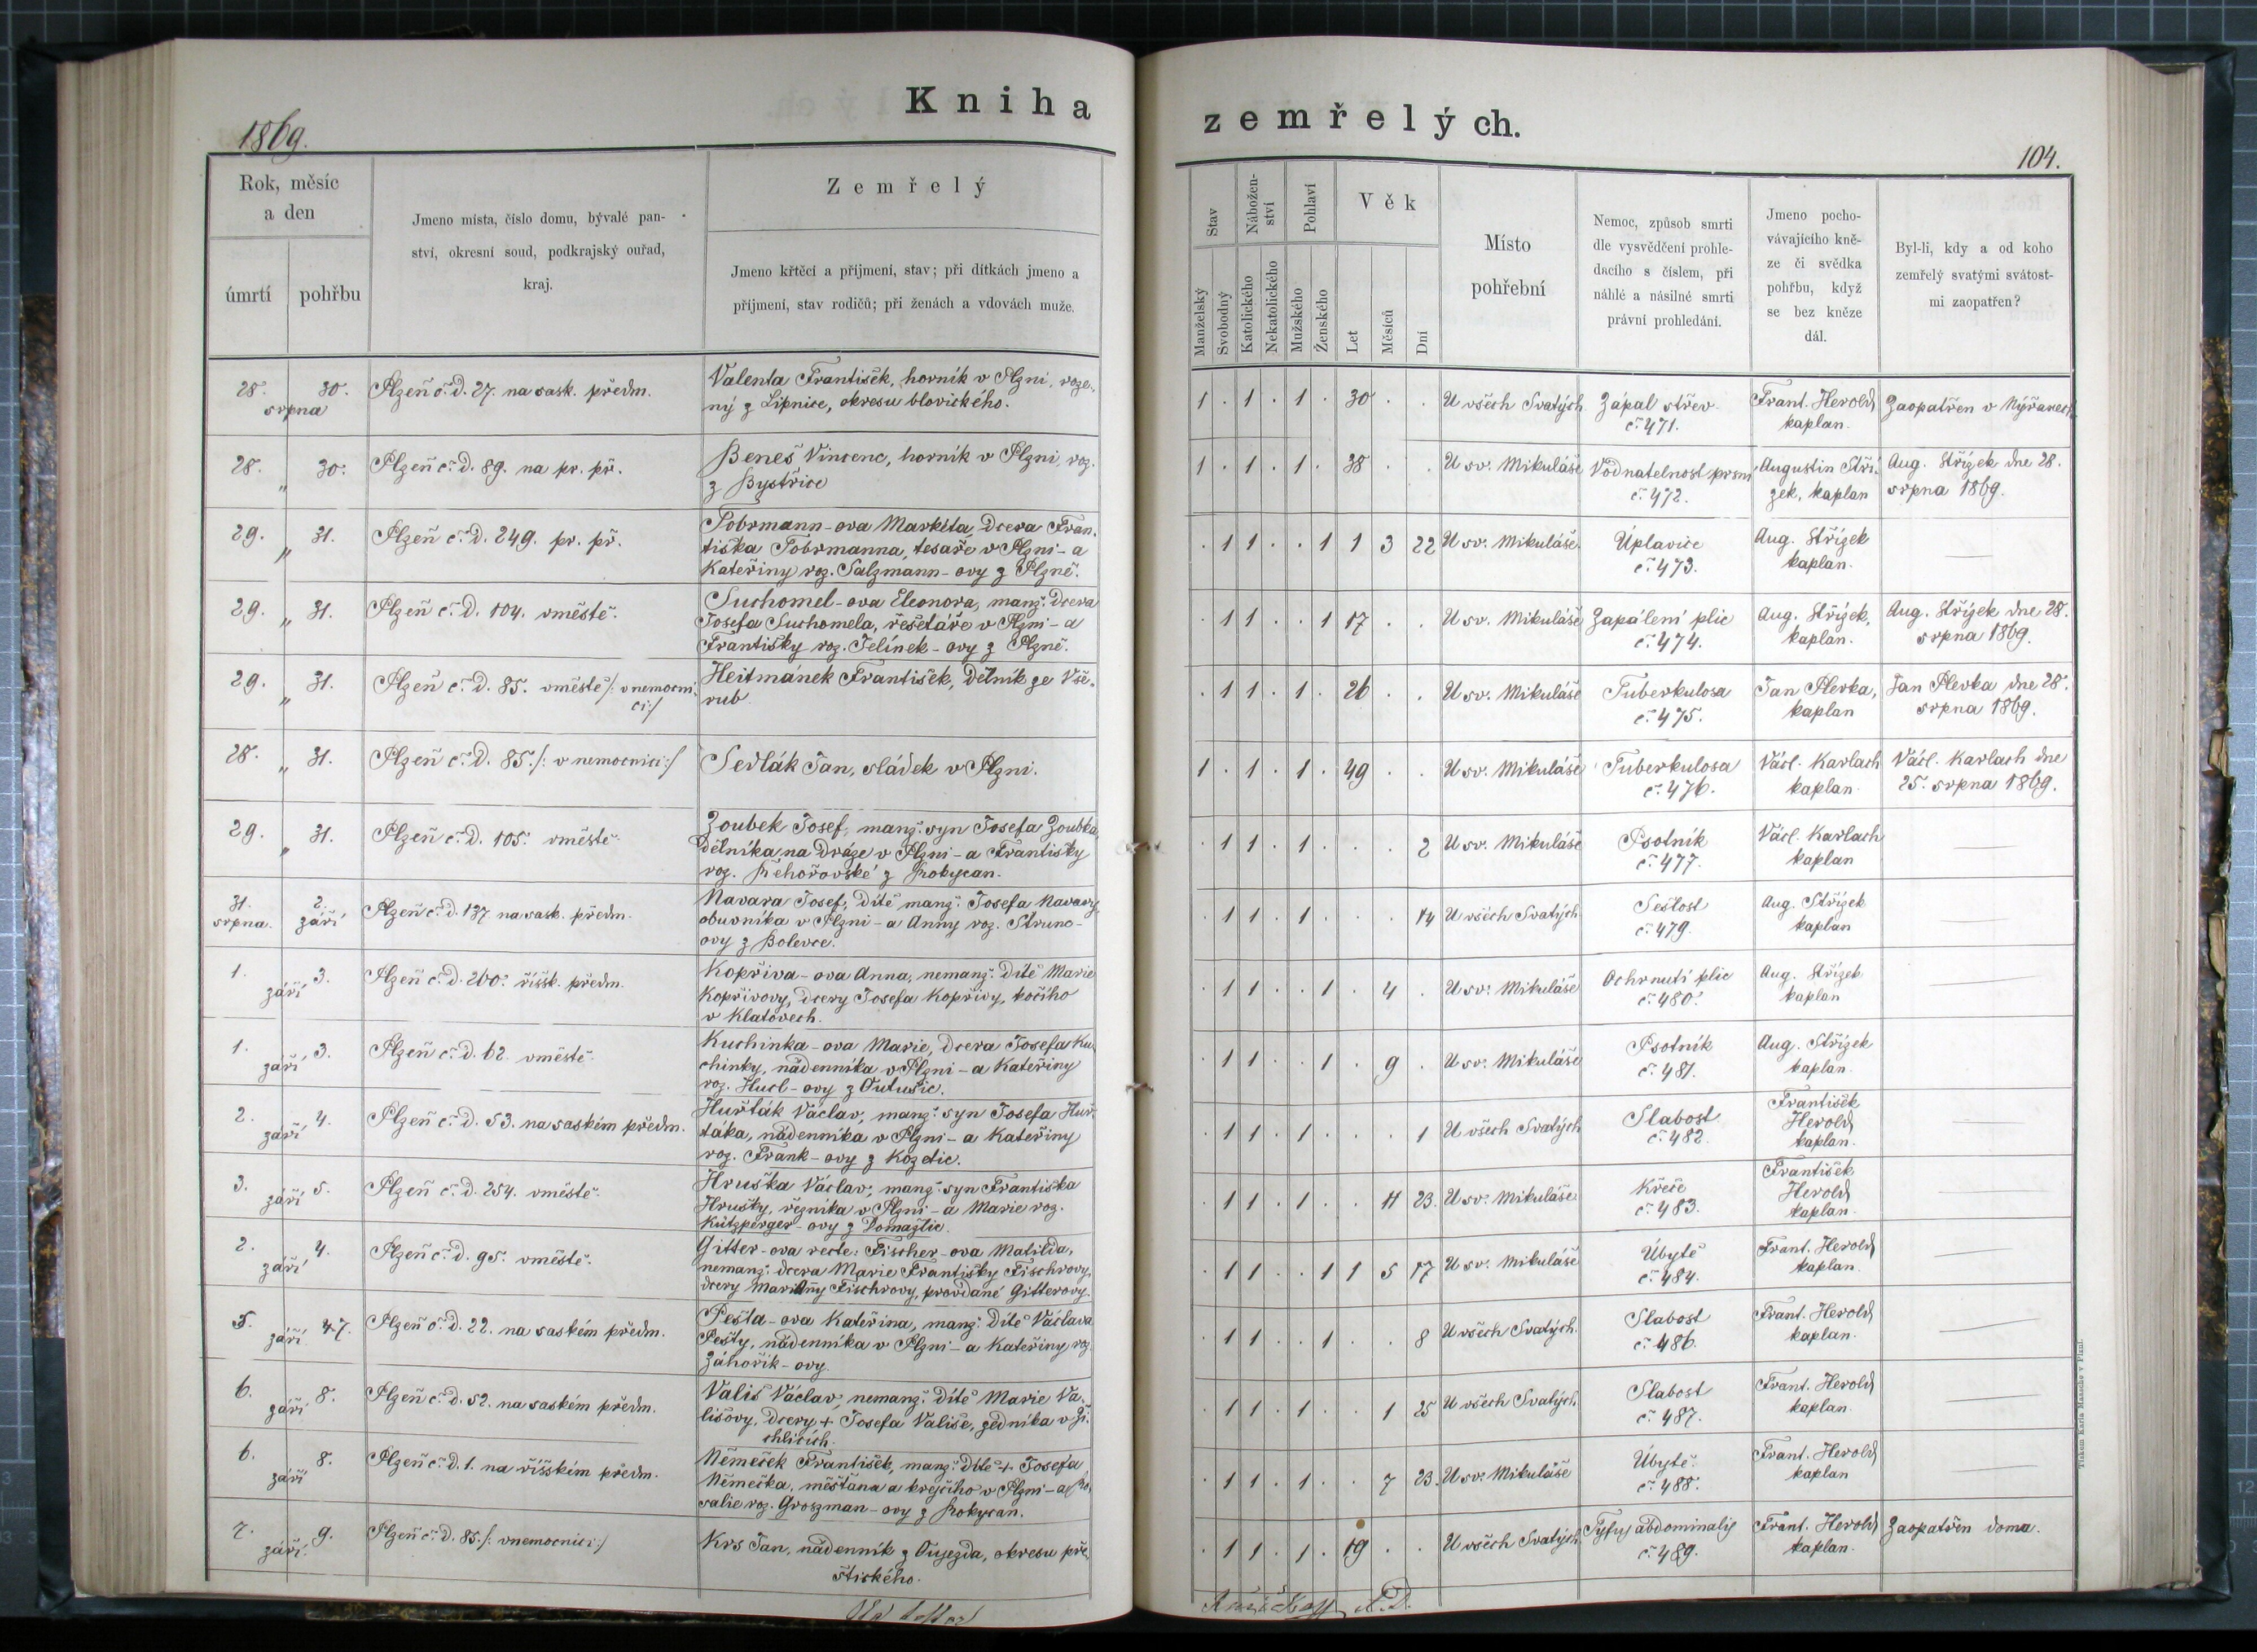 Kniha
1869.
Rok, měsíc
a den
úmrtí
pohřbu
Jmeno místa, číslo domu, bývalé pan-
ství, okresní soud, podkrajský ouřad,
kraj.
Zemřelý
Jmeno křtěcí a přijmení, stav; při dítkách jmeno a
příjmení, stav rodičů; při ženách a vdovách muže.
28. 30. Plzeň č. d. 27. na sask. předm. Valenta František, horník v Plzni, roze-
srpna ný z Lipnice, okresu blovického.
28. „ 30. Plzeň č. d. 89. na pr. př. Beneš Vincenc, horník v Plzni, roz.
z Bystřice
29. „ 31. Plzeň č. d. 249. pr. př. Tobrmann-ova Markéta, dcera Fran-
tiška Tobrmanna, tesaře v Plzni - a
Kateřiny roz. Salzmann-ovy z Plzně.
29. „ 31. Plzeň č. d. 104. vměstě. Suchomel-ova Eleonora, manž. dcera
Josefa Suchomela, řešetáře v Plzni - a
Františky roz. Jelínek-ovy z Plzně.
29. „ 31. Plzeň č. d. 85. vměstě /: v nemocni- Heitmánek František, dělník ze Vše-
ci :/ rub
28. „ 31. Plzeň č. d. 85. /: v nemocnici :/ Sedlák Jan, sládek v Plzni.
29. „ 31. Plzeň č. d. 105. vměstě. Zoubek Josef, manž. syn Josefa Zoubka,
dělníka na dráze v Plzni - a Františky
roz. Řehořovské z Rokycan.
31. 2. Plzeň č. d. 137 na sask. předm. Navara Josef, dítě manž. Josefa Navary
srpna. září obuvníka v Plzni - a Anny roz. Strunc-
ovy z Bolevce.
1. září 3. Plzeň č. d. 200. říšsk. předm. Kopřiva-ova Anna, nemanž. dítě Marie
Kopřivovy, dcery Josefa Kopřivy, kočího
v Klatovech.
1. září 3. Plzeň č. d. 62. vměstě. Kuchinka-ova Marie, dcera Josefa Ku-
chinky, nádenníka v Plzni - a Kateřiny
roz. Hucl-ovy z Outušic.
2. září 4. Plzeň č. d. 53. na saském předm. Huřták Václav, manž. syn Josefa Huř-
táka, nádenníka v Plzni - a Kateřiny
roz. Frank-ovy z Kozetic.
3. září 5. Plzeň č. d. 254. vměstě. Hruška Václav, manž. syn Františka
Hrušky, řezníka v Plzni - a Marie roz.
Kützperger-ovy z Domažlic.
2. září 4. Plzeň č. d. 95. vměstě. Gitter-ova recte: Fischer-ova Matilda,
nemanž. dcera Marie Františky Fischrovy,
dcery Mariany Fischrovy, provdané Gitterovy.
5. září 7. Plzeň č. d. 22. na saském předm. Pešta-ova Kateřina, manž. dítě Václava
Pešty, nádenníka v Plzni - a Kateřiny roz.
Záhořík-ovy.
6. září 8. Plzeň č. d. 52. na saském předm. Vališ Václav, nemanž. dítě Marie Va-
lišovy, dcery + Josefa Vališe, zedníka v Ži-
chlicích.
6. září 8. Plzeň č. d. 1. na říšském předm. Němeček František, manž. dítě + Josefa
Němečka, měšťana a krejčího v Plzni - a Ro-
salie roz. Groszman-ovy z Rokycan.
7. září. 9. Plzeň č. d. 85. /: vnemocnici :/ Krs Jan, nádenník z Oujezda, okresu pře-
štického.
zemřelých.
104.
Stav
Nábožen-
ství
Pohlaví
Věk
Manželský
Svobodný
Katolického
Nekatolického
Mužského
Ženského
Let
Měsíců
Dní
Místo
pohřební
Nemoc, způsob smrti
dle vysvědčení prohle-
dacího s číslem, při
náhlé a násilné smrti
právní prohledání.
Jmeno pocho-
vávajícího kně-
ze či svědka
pohřbu, když
se bez kněze
dál.
Byl-li, kdy a od koho
zemřelý svatými svátost-
mi zaopatřen?
1 . 1 . 1 . 30 . . U všech Svatých Zápal střev Frant. Herold, Zaopatřen v Nýřanech
č. 471. kaplan.
1 . 1 . 1 . 38 . . U sv. Mikuláše Vodnatelnost prsní Augustin Stří- Aug. Střízek dne 28.
č. 472. zek, kaplan srpna 1869.
. 1 1 . . 1 1 3 22 U sv. Mikuláše. Úplavice Aug. Střízek
č. 473. kaplan.
. 1 1 . . 1 17 . . U sv. Mikuláše Zapálení plic Aug. Střízek, Aug. Střízek dne 28.
č. 474. kaplan. srpna 1869.
. 1 1 . 1 . 26 . . U sv. Mikuláše Tuberkulosa Jan Plevka, Jan Plevka dne 28.
č. 475. kaplan srpna 1869.
1 . 1 . 1 . 49 . . U sv. Mikuláše Tuberkulosa Václ. Karlach Václ. Karlach dne
č. 476. kaplan. 25. srpna 1869.
. 1 1 . 1 . . . 2 U sv. Mikuláše Psotník Václ. Karlach
č. 477. kaplan
. 1 1 . 1 . . . 14 U všech Svatých. Sešlost Aug. Střízek
č. 479. kaplan
. 1 1 . . 1 . 4 . U sv. Mikuláše Ochrnutí plic Aug. Střízek
č. 480. kaplan
. 1 1 . . 1 . 9 . U sv. Mikuláše Psotník Aug. Střízek
č. 481. kaplan.
. 1 1 . 1 . . . 1 U všech Svatých Slabost František
č. 482. Herold,
kaplan.
. 1 1 . 1 . . 11 23. U sv. Mikuláše Křeče František
č. 483. Herold,
kaplan.
. 1 1 . . 1 1 5 17 U sv. Mikuláše Úbytě Frant. Herold,
č. 484. kaplan.
. 1 1 . . 1 . . 8 U všech Svatých. Slabost Frant. Herold,
č. 486. kaplan.
. 1 1 . 1 . . 1 25 U všech Svatých Slabost Frant. Herold,
č. 487. kaplan.
. 1 1 . 1 . . 7 23. U sv. Mikuláše Úbytě. Frant. Herold,
č. 488. kaplan
. 1 1 . 1 . 19 . . U všech Svatých Tyfus abdominalis Frant. Herold, Zaopatřen doma.
č. 489. kaplan.